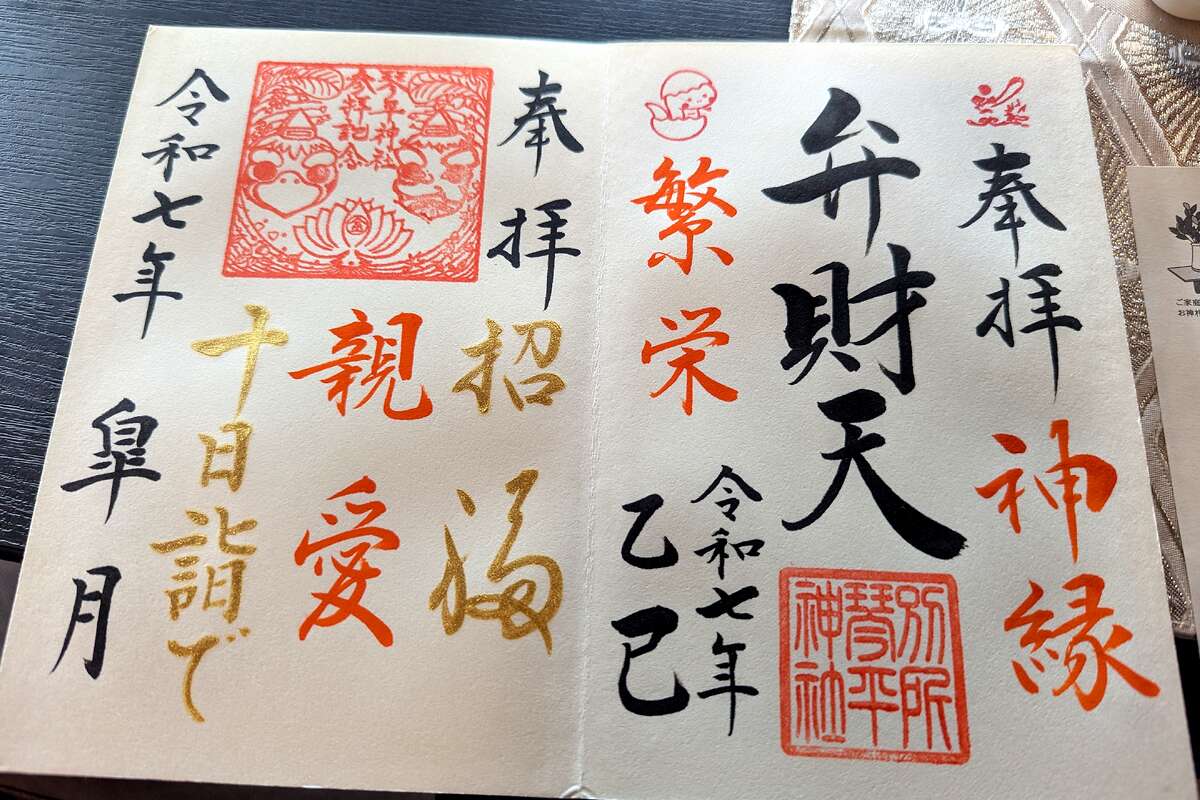 奉拝
神縁
弁財天
別所
琴平
神社
繁栄
令和七年
乙巳
奉拝
招福
琴平神社
参拝記念
親愛
十日詣で
令和七年
皐月
ご家庭
お神札